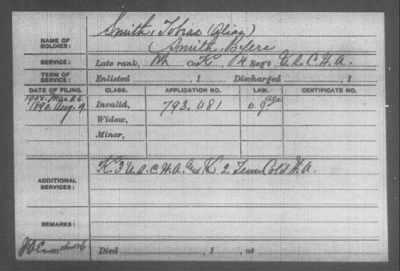 NAME OF SOLDIER: Smith, Tobias (Alias)
Smith,
SERVICE: Late rank, Co. K, Reg't U.S.C.H.A.
TERM OF SERVICE: Enlisted , 1 Discharged , 1
DATE OF FILING. CLASS. APPLICATION NO. LAW. CERTIFICATE NO.
1890. Aug. 9. Invalid, 793.081
Widow,
Minor,
ADDITIONAL SERVICES: K. 3 U.S.C.H.A. and K 2 Tenn Cold H.A.
REMARKS:
Died , 1 , at